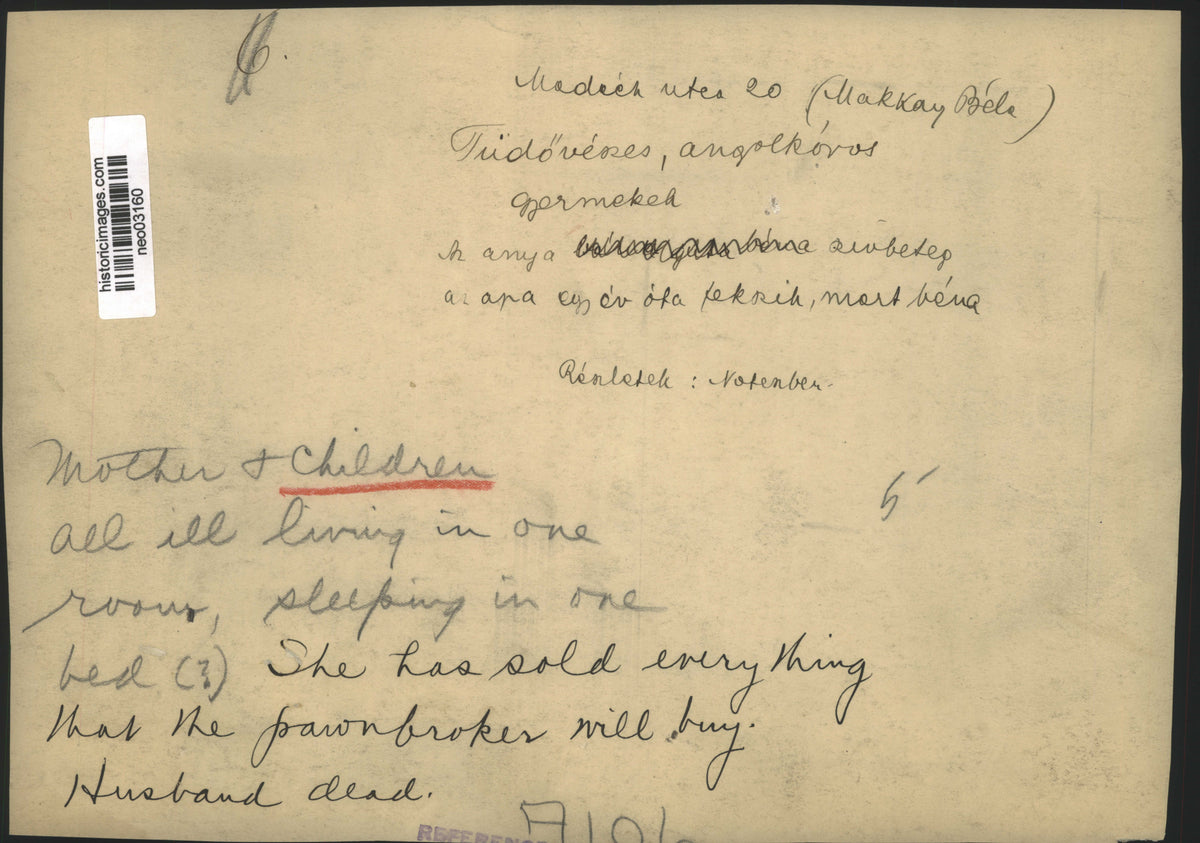 6.
Madách utca 20 (Makkay Béla)
Tüdővészes, angolkóros
gyermekek
Az anya szívbeteg
az apa egy év óta fekszik, mert béna
Részletek : Notenber.
historicimages.com
neo03160
Mother + Children
all ill living in one
room, sleeping in one
bed (?) She has sold everything
that the pawnbroker will buy.
Husband dead.
REFERENCE